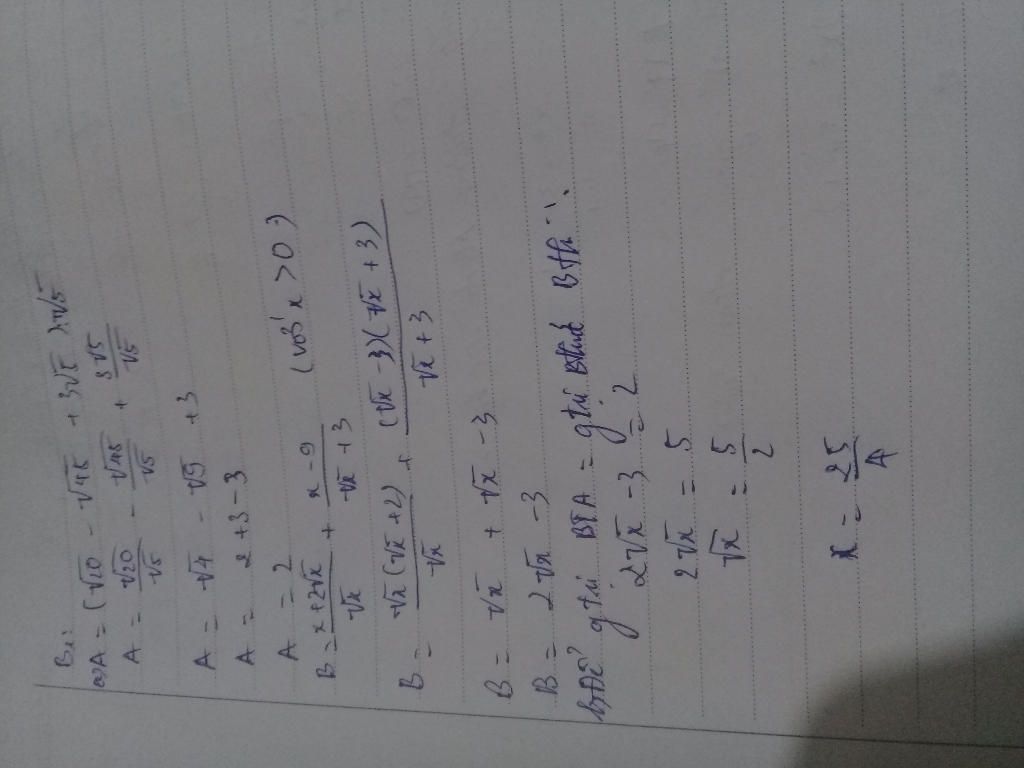 B1:
a, A = (√20 - √45 + 3√5) : √5
A = √20/√5 - √45/√5 + 3√5/√5
A = √4 - √9 + 3
A = 2 + 3 - 3
A = 2
B = x+2√x/√x + x-9/√x+3 (với x > 0)
B = √x(√x+2)/√x + (√x-3)(√x+3)/√x+3
B = √x + √x - 3
B = 2√x - 3
b, Để gtrị BTA = gtrị BT B thì
2√x - 3 = 2
2√x = 5
√x = 5/2
x = 25/4